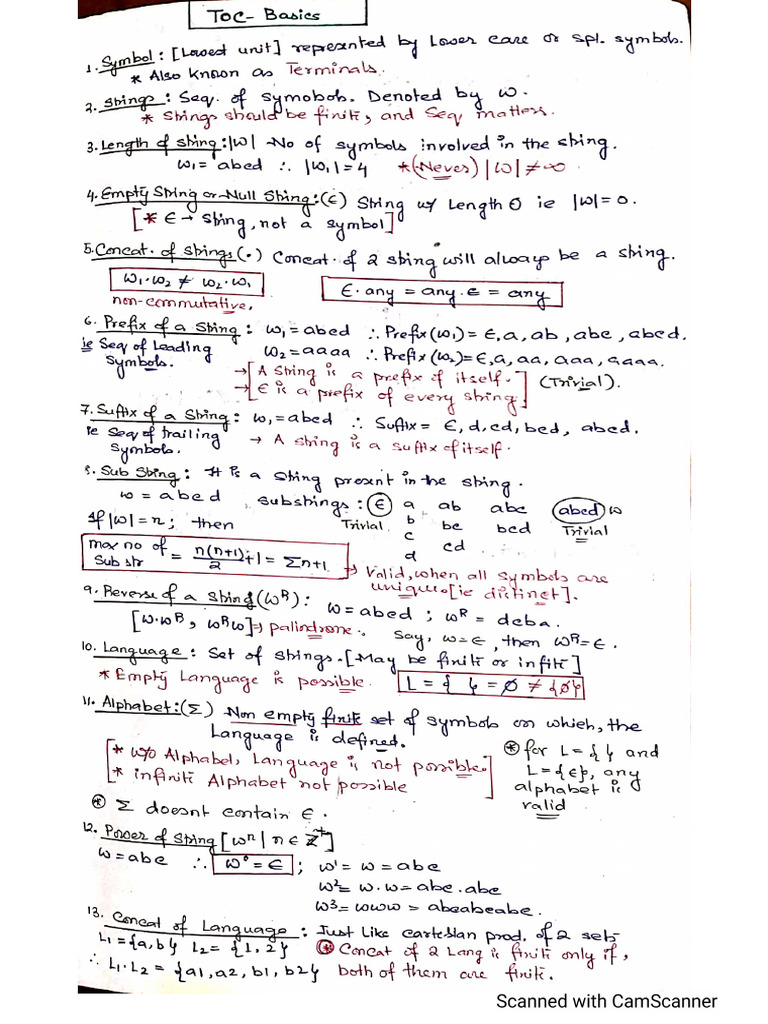 TOC- Basics
1. Symbol: [Lowest unit] represented by Lower case or spl. symbols.
* Also known as Terminals.
2. Strings: Seq. of symobols. Denoted by w.
* Strings should be finite, and Seq matters.
3. Length of string: |w| - No of symbols involved in the string.
w₁ = abcd ∴ |w₁| = 4 *(Never) |w| ≠ ∞
4. Empty String or Null String: (ϵ) String w/ Length 0 ie |w|=0.
[* ϵ → string, not a symbol]
5. Concat. of strings (•) Concat. of 2 string will always be a string.
w₁·w₂ ≠ w₂·w₁ ϵ·any = any·ϵ = any
non-commutative.
6. Prefix of a String: w₁ = abcd ∴ Prefix(w₁) = ϵ, a, ab, abc, abcd.
ie Seq of Leading w₂ = aaaa ∴ Prefix(w₂) = ϵ, a, aa, aaa, aaaa.
symbols. → [A string is a prefix of itself.
→ ϵ is a prefix of every string] (Trivial).
7. Suffix of a String: w₁ = abcd ∴ Suffix = ϵ, d, cd, bcd, abcd.
ie Seq of trailing → A string is a suffix of itself.
symbols.
8. Sub String: It is a string present in the string.
w = abcd substrings: ϵ a ab abc abcd w
If |w| = n; then Trivial b bc bcd Trivial
c cd
d
max no of Sub str = n(n+1)/2 + 1 = Σn+1
→ Valid, when all symbols are
unique [ie distinct].
9. Reverse of a string (wᴿ): w = abcd; wᴿ = dcba.
[w·wᴿ, wᴿw] ⇒ palindrome. Say, w = ϵ, then wᴿ = ϵ.
10. Language: Set of strings. [May be finite or infite]
* Empty Language is possible. L = { } = ∅ ≠ {∅}
11. Alphabet: (Σ) Non empty finite set of symbols on which, the
Language is defined.
[* w/o Alphabet, Language is not possible.
* infinite Alphabet not possible]
* for L = { } and
L = {ϵ}, any
alphabet is
valid
* Σ doesnt contain ϵ.
12. Power of string [wⁿ | n ∈ Z⁺]
w = abc ∴ w⁰ = ϵ ; w¹ = w = abc
w² = w.w = abc.abc
w³ = www = abcabcabc.
13. Concat of Language: Just like cartesian prod. of 2 sets
L₁ = {a, b} L₂ = {1, 2} * Concat of 2 Lang is finite only if,
∴ L₁·L₂ = {a1, a2, b1, b2} both of them are finite.
Scanned with CamScanner